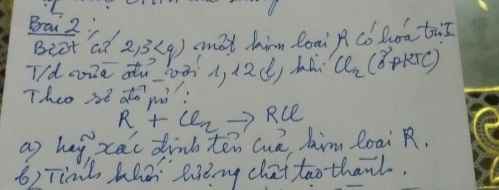 Bài 2:
Biết cứ 2,3 (g) một kim loại R có hóa trị I
T/d vừa đủ với 1,12 (l) khí Cl2 (ở ĐKTC)
Theo sơ đồ pứ:
R + Cl2 → RCl
a) hãy xác định tên của kim loại R.
b) Tính khối lượng chất tạo thành.